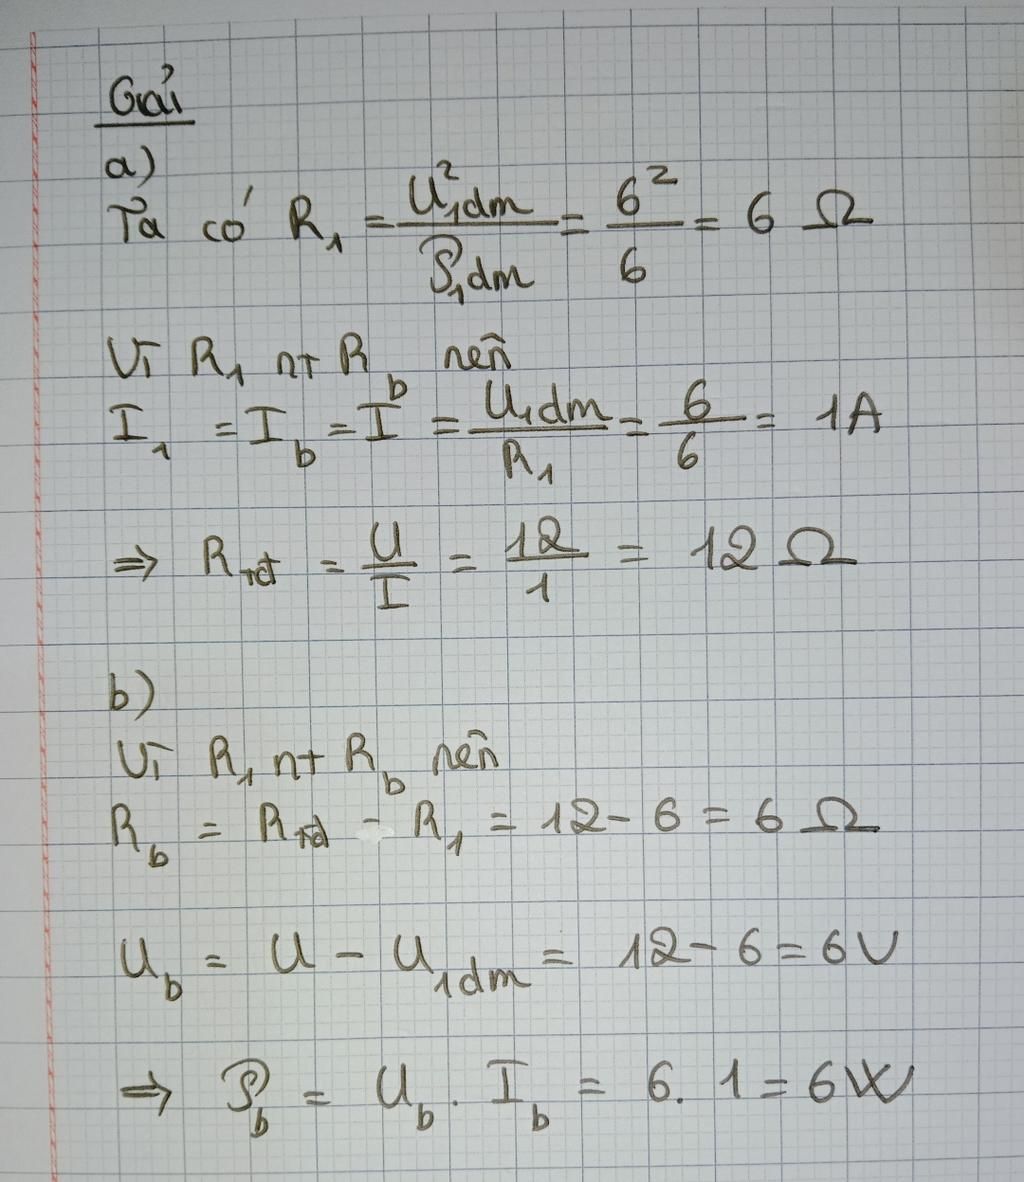 Giải
a)
Ta có R₁ = U²₁dm / P₁dm = 6² / 6 = 6 Ω
Vì R₁ nt R_b nên
I₁ = I_b = I = U₁dm / R₁ = 6 / 6 = 1A
⇒ R_tđ = U / I = 12 / 1 = 12 Ω
b)
Vì R₁ nt R_b nên
R_b = R_tđ - R₁ = 12 - 6 = 6 Ω
U_b = U - U₁dm = 12 - 6 = 6V
⇒ P_b = U_b . I_b = 6. 1 = 6W